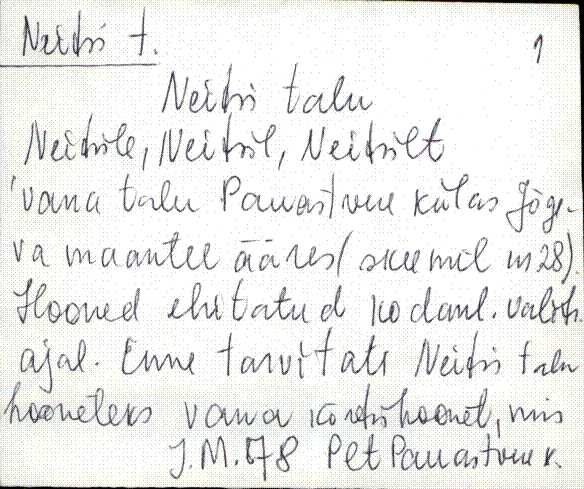 Neitsi t. 1
Neitsi talu
Neitsile, Neitsil, Neitsilt
'vana talu Panastvere külas Jõge-
va maantee ääres (skeemil nr 28).
Hooned ehitatud kodanl. valits.
ajal. Enne tarvitati Neitsi talu
hooneteks vana kõrtsihoonet, mis
J.M. 78 Plt Panastvere k.